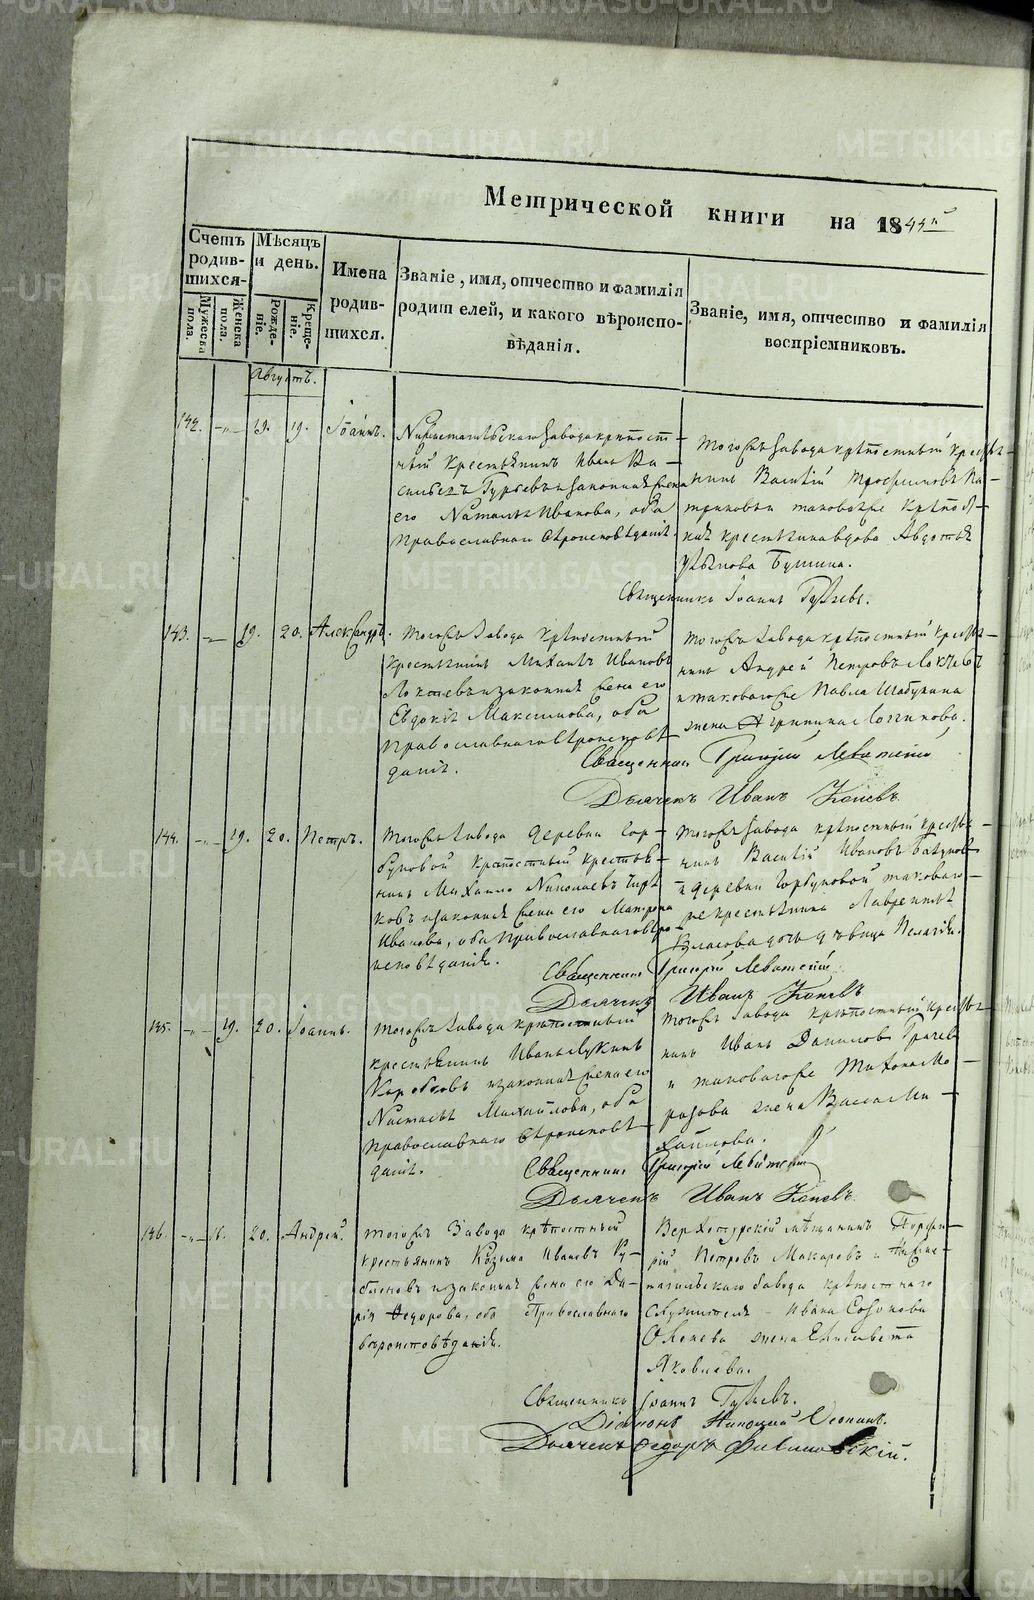 METRIKI.GASO-URAL.RU
Метрической книги на 1844й
Счетъ родившихся.
Мѣсяцъ и день.
Мужеска пола.
Женска пола.
Рожденіе.
Крещеніе.
Имена родившихся.
Званіе, имя, отчество и фамилія
родителей, и какого вѣроиспо-
вѣданія.
Званіе, имя, отчество и фамилія
воспріемниковъ.
Августъ.
142. 19. 19. Іоаннъ.
Нижнетагильскаго завода крѣпост-
ный крестьянинъ Иванъ Ва-
сильевъ Гурьевъ и законная жена
его Наталья Иванова, оба
православнаго вѣроисповѣданія.
Тогожъ завода крѣпостный крестья-
нинъ Василій Трофимовъ Па-
таковаже крѣпост-
ная крестьянина вдова Авдотья
Бушина.
Священникъ Іоаннъ
143. 19. 20. Александръ.
Тогожъ завода крѣпостный
крестьянинъ Михаилъ Ивановъ
Локтевъ и законная жена его
Евдокія Максимова, оба
православнаго вѣроисповѣ-
данія.
Тогожъ завода крѣпостный крестья-
нинъ Андрей Петровъ Локтевъ
и таковагоже Павла Шабунина
жена Агрипина Логинова.
Священникъ Григорій
Дьячекъ Иванъ
144. 19. 20. Петръ.
Тогожъ завода деревни Гор-
буновой крѣпостный крестья-
нинъ Михаило Николаевъ
и законная жена его Матрона
Иванова, оба православнаго вѣро-
исповѣданія.
Тогожъ завода крѣпостный крестья-
нинъ Василій Ивановъ
и деревни Горбуновой таковаго-
же крестьянина Лаврентья
Власова дочь дѣвица Пелагія.
Священникъ Григорій
Дьячекъ Иванъ
145. 19. 20. Іоаннъ.
Тогожъ завода крѣпостный
крестьянинъ Иванъ Лукинъ
Коробковъ и законная жена его
Настасья Михайлова, оба
православнаго вѣроисповѣ-
данія.
Тогожъ завода крѣпостный крестья-
нинъ Иванъ Даниловъ Грачевъ
и таковагоже Тихона Мо-
розова жена Васса Ми-
хайлова.
Священникъ Григорій
Дьячекъ Иванъ
146. 16. 20. Андрей.
Тогожъ завода крѣпостный
крестьянинъ Кузьма Ивановъ Ру-
бленовъ и законная жена его Да-
рія Ѳедорова, оба Православнаго
вѣроисповѣданія.
Верхотурскій мѣщанинъ Порфи-
рій Петровъ Макаровъ и Нижне-
тагильскаго завода крѣпостнаго
служителя Ивана Созонова
жена Елисавета
Яковлева.
Священникъ Іоаннъ
Діаконъ Николай
Дьячекъ Ѳедоръ